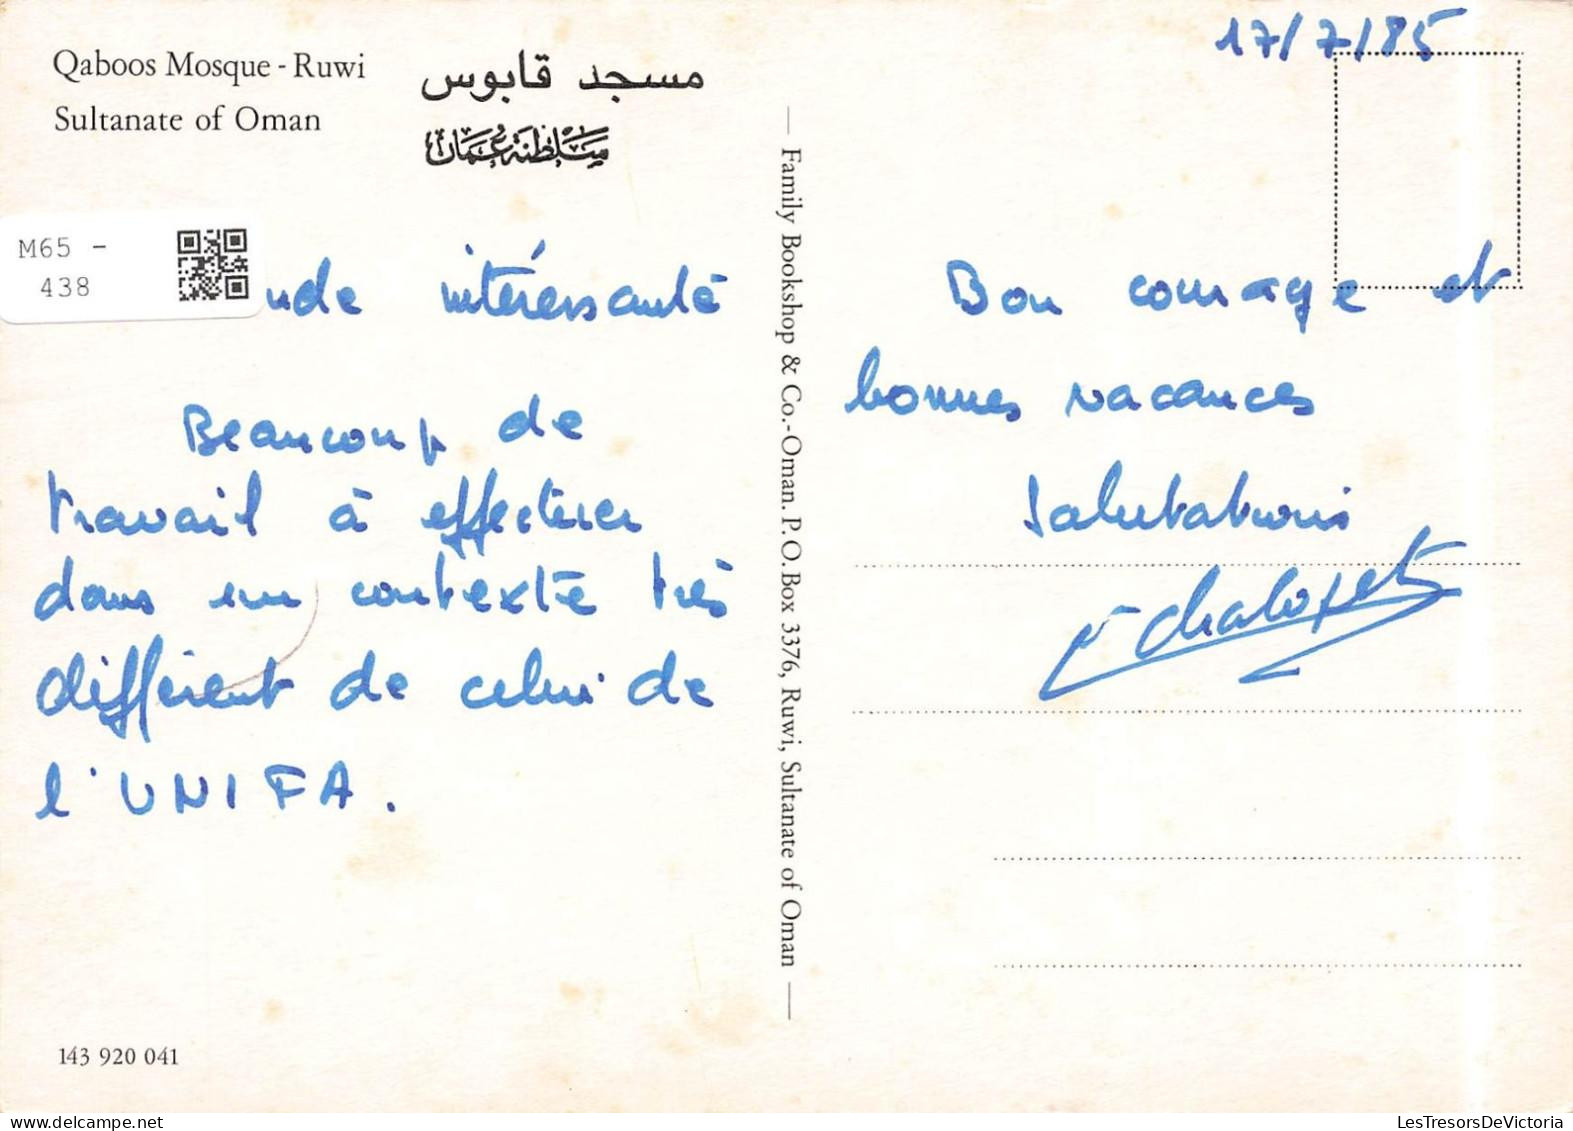 Qaboos Mosque - Ruwi
Sultanate of Oman
مسجد قابوس
سلطنة عمان
M65 -
438
nde intéressante
Beaucoup de
travail à effectuer
dans un contexte très
différent de celui de
l'UNIFA.
143 920 041
— Family Bookshop & Co.-Oman. P.O. Box 3376, Ruwi, Sultanate of Oman —
17/7/85
Bon courage et
bonnes vacances
Salutations
LesTresorsDeVictoria
delcampe.net